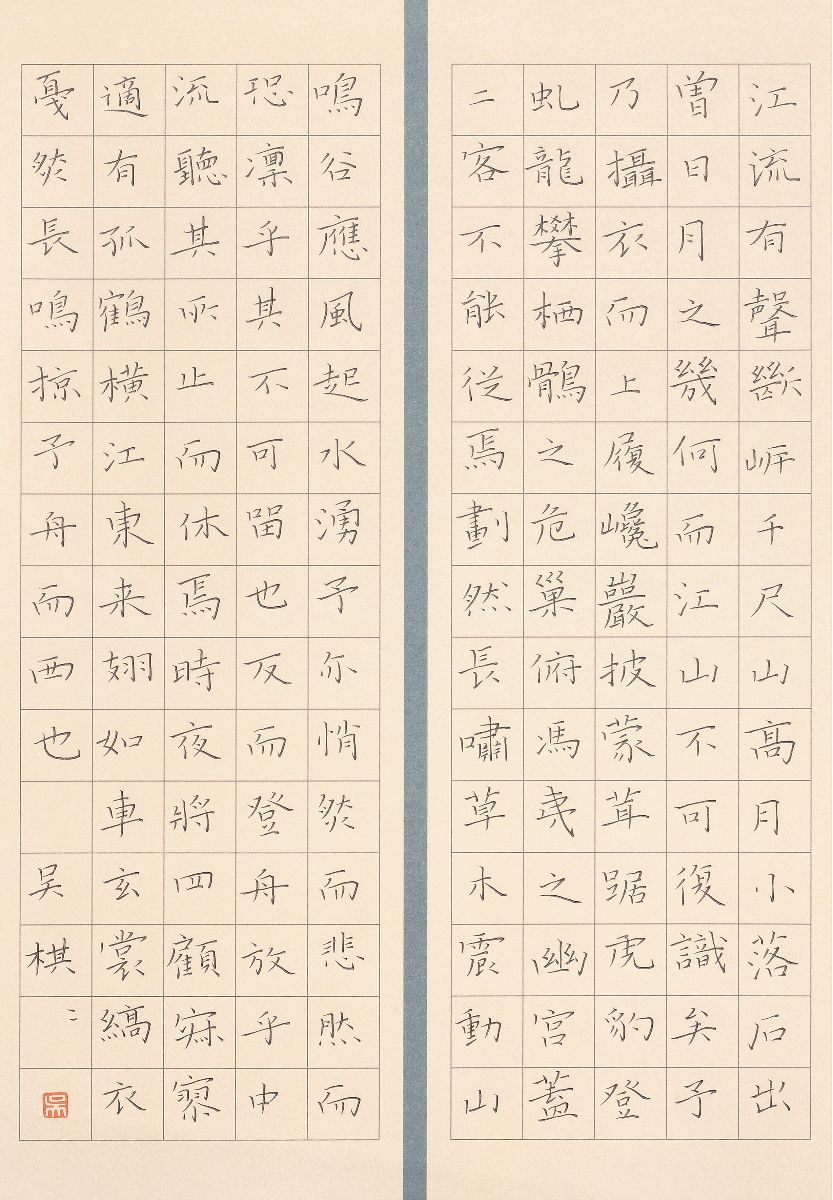 江流有聲斷岸千尺山高月小落石出
曾日月之幾何而江山不可復識矣予
乃攝衣而上履巉巖披蒙茸踞虎豹登
虬龍攀栖鶻之危巢俯馮夷之幽宮蓋
二客不能從焉劃然長嘯草木震動山
鳴谷應風起水湧予亦悄然而悲然而
恐凛乎其不可留也反而登舟放乎中
流聽其所止而休焉時夜將四顧寂寥
適有孤鶴橫江東来翅如車玄裳縞衣
戛然長鳴掠予舟而西也
吴棋二
吴